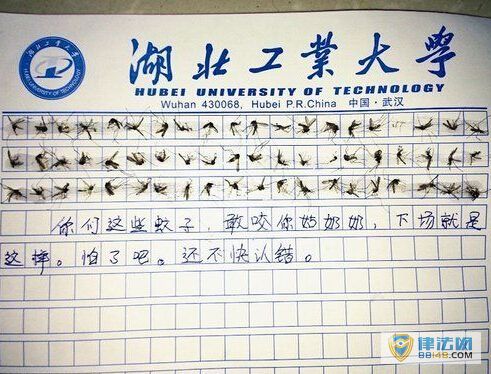 湖北工業大學
HUBEI UNIVERSITY OF TECHNOLOGY
HUBEI UNIVERSITY OF TECHNOLOGY
Wuhan 430068, Hubei P.R.China 中国·武汉
你们这些蚊子，敢咬你姑奶奶，下场就是
这样。怕了吧。还不快认错。
律法网
88148.com